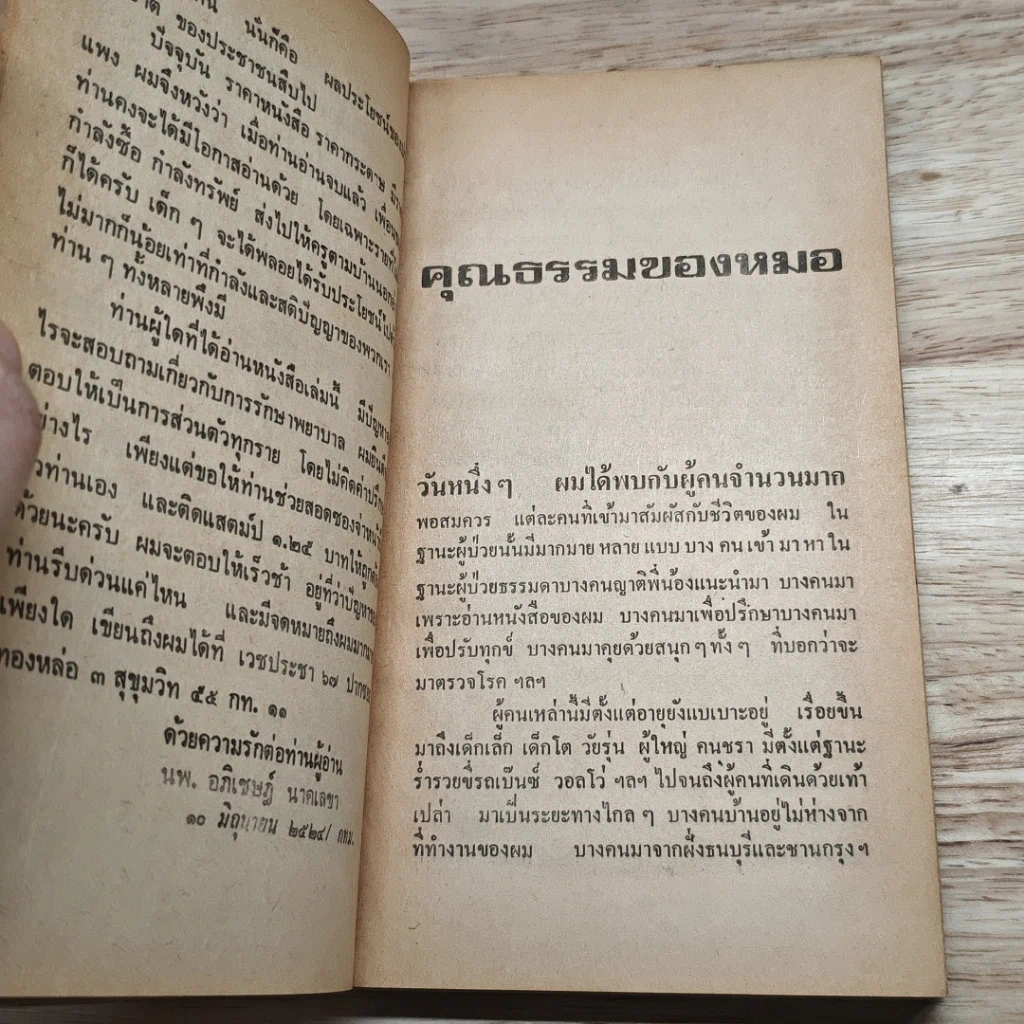 นั่นก็คือ ผลประโยชน์ของ
ของประชาชนสืบไป
ปัจจุบัน ราคาหนังสือ ราคากระดาษ
แพง ผมจึงหวังว่า เมื่อท่านอ่านจบแล้ว
ท่านคงจะได้มีโอกาสอ่านด้วย โดยเฉพาะ
กำลังซื้อ กำลังทรัพย์ ส่งไปให้ครูตามบ้านนอก
ก็ได้ครับ เด็ก ๆ จะได้พลอยได้รับประโยชน์
ไม่มากก็น้อยเท่าที่กำลังและสติปัญญาของพวกเรา
ท่าน ๆ ทั้งหลายพึงมี
ท่านผู้ใดที่ได้อ่านหนังสือเล่มนี้ มีปัญหา
ไรจะสอบถามเกี่ยวกับการรักษาพยาบาล ผมยินดี
ตอบให้เป็นการส่วนตัวทุกราย โดยไม่คิดค่า
ย่างไร เพียงแต่ขอให้ท่านช่วยสอดซองจ่าหน้า
ท่านเอง และติดแสตมป์ ๑.๒๕ บาทให้
ด้วยนะครับ ผมจะตอบให้เร็วช้า อยู่ที่ว่าปัญหา
ท่านรีบด่วนแค่ไหน และมีจดหมายถึงผม
เพียงใด เขียนถึงผมได้ที่ เวชประชา ๖๗
ทองหล่อ ๓ สุขุมวิท ๕๕ กท. ๑๑
ด้วยความรักต่อท่านผู้อ่าน
นพ. อภิเชษฎ์ นาคเลขา
๑๐ มิถุนายน ๒๕๒๔/ กทม.
คุณธรรมของหมอ
วันหนึ่ง ๆ ผมได้พบกับผู้คนจำนวนมาก
พอสมควร แต่ละคนที่เข้ามาสัมผัสกับชีวิตของผม ใน
ฐานะผู้ป่วยนั้นมีมากมาย หลาย แบบ บาง คน เข้า มา หา ใน
ฐานะผู้ป่วยธรรมดาบางคนญาติพี่น้องแนะนำมา บางคนมา
เพราะอ่านหนังสือของผม บางคนมาเพื่อปรึกษาบางคนมา
เพื่อปรับทุกข์ บางคนมาคุยด้วยสนุก ๆ ทั้ง ๆ ที่บอกว่าจะ
มาตรวจโรค ฯลฯ
ผู้คนเหล่านี้มีตั้งแต่อายุยังแบเบาะอยู่ เรื่อยขึ้น
มาถึงเด็กเล็ก เด็กโต วัยรุ่น ผู้ใหญ่ คนชรา มีตั้งแต่ฐานะ
ร่ำรวยขี่รถเบ๊นซ์ วอลโว่ ฯลฯ ไปจนถึงผู้คนที่เดินด้วยเท้า
เปล่า มาเป็นระยะทางไกล ๆ บางคนบ้านอยู่ไม่ห่างจาก
ที่ทำงานของผม บางคนมาจากฝั่งธนบุรีและชานกรุงฯ